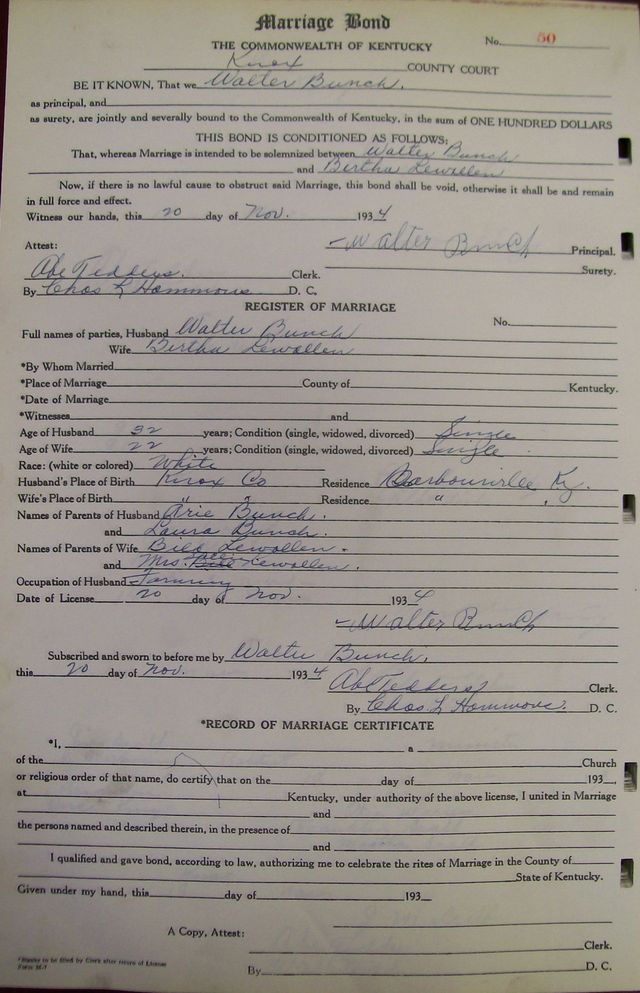 Marriage Bond
THE COMMONWEALTH OF KENTUCKY No. 50
Knox COUNTY COURT
BE IT KNOWN, That we Walter Bunch.
as principal, and
as surety, are jointly and severally bound to the Commonwealth of Kentucky, in the sum of ONE HUNDRED DOLLARS
THIS BOND IS CONDITIONED AS FOLLOWS:
That, whereas Marriage is intended to be solemnized between Walter Bunch
and Birtha Lewallen
Now, if there is no lawful cause to obstruct said Marriage, this bond shall be void, otherwise it shall be and remain
in full force and effect.
Witness our hands, this 20 day of Nov. 1934
Walter Bunch Principal.
Attest:
Surety.
Abe Tedders. Clerk.
By Chas L Hammons D. C.
REGISTER OF MARRIAGE
No.
Full names of parties, Husband Walter Bunch
Wife Birtha Lewallen
*By Whom Married
*Place of Marriage County of Kentucky.
*Date of Marriage
*Witnesses and
Age of Husband 32 years; Condition (single, widowed, divorced) Single
Age of Wife 22 years; Condition (single, widowed, divorced) Single
Race: (white or colored) White
Husband's Place of Birth Knox Co Residence Barbourville Ky.
Wife's Place of Birth " " Residence " ,
Names of Parents of Husband Arie Bunch.
and Laura Bunch.
Names of Parents of Wife Bill Lewallen.
and Mrs. Lewallen.
Occupation of Husband Farming
Date of License 20 day of Nov. 1934
Walter Bunch
Subscribed and sworn to before me by Walter Bunch.
this 20 day of Nov. 1934
Abe Tedders Clerk.
By Chas L Hammons. D. C.
*RECORD OF MARRIAGE CERTIFICATE
*I, a
of the Church
or religious order of that name, do certify that on the day of 193
at Kentucky, under authority of the above license, I united in Marriage
and
the persons named and described therein, in the presence of
and
I qualified and gave bond, according to law, authorizing me to celebrate the rites of Marriage in the County of
State of Kentucky.
Given under my hand, this day of 193
A Copy, Attest:
Clerk.
By D. C.
*Blanks to be filled by Clerk after return of License
Form M-7